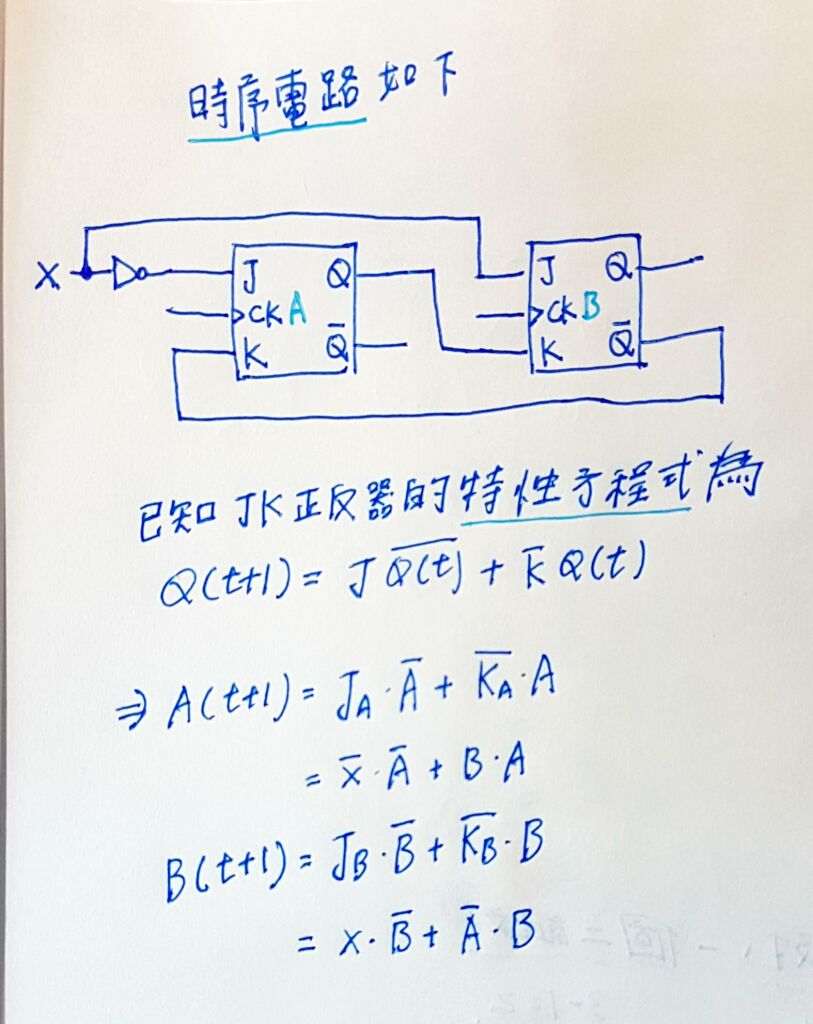 時序電路如下
X J Q J Q
CK A CK B
K Q̅ K Q̅
已知JK正反器的特性方程式為
Q(t+1) = J Q̅(̅t̅)̅ + K̅ Q(t)
⇒ A(t+1) = J_A · A̅ + K̅_̅A̅ · A
= x̅ · A̅ + B · A
B(t+1) = J_B · B̅ + K̅_̅B̅ · B
= x · B̅ + A̅ · B